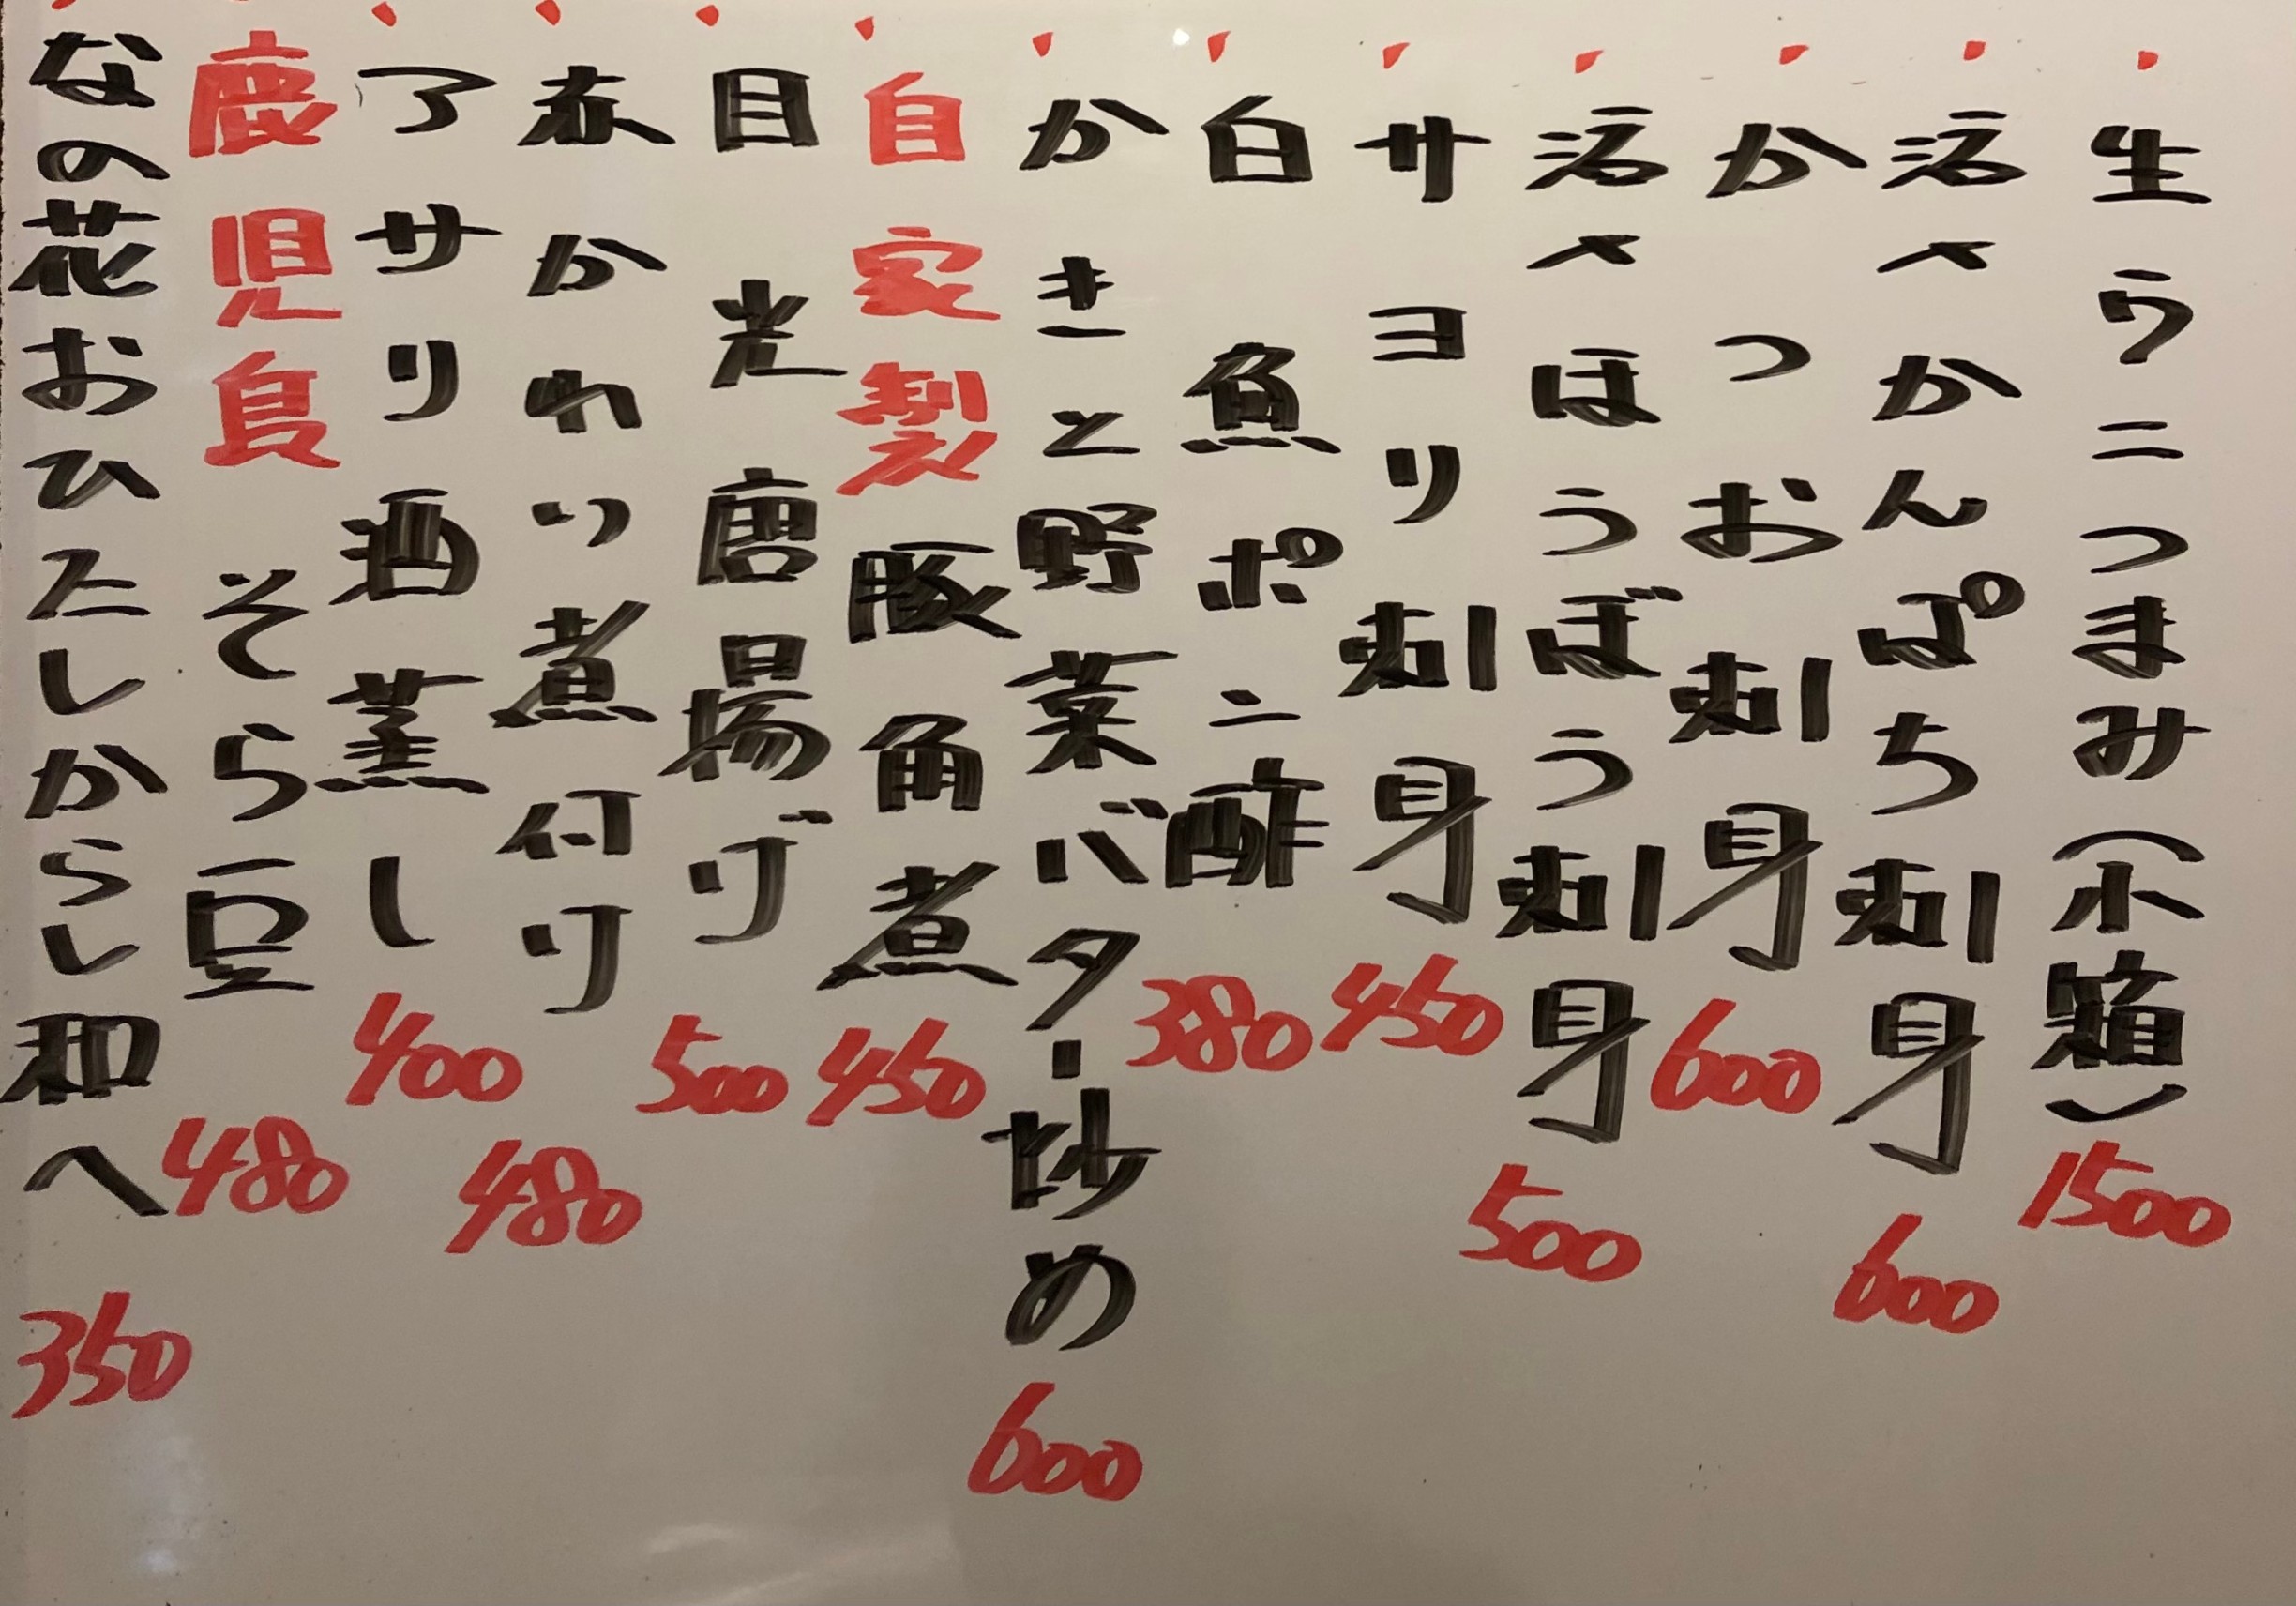 生ウニつまみ(小箱)1500
活〆かんぱち刺身600
かつお刺身600
活〆ほうぼう刺身500
サヨリ刺身450
白魚ポン酢380
かきと野菜バター炒め600
自家製豚角煮450
目光唐揚げ500
赤かれい煮付け480
アサリ酒蒸し400
鹿児島そら豆480
なの花おひたしからし和へ350